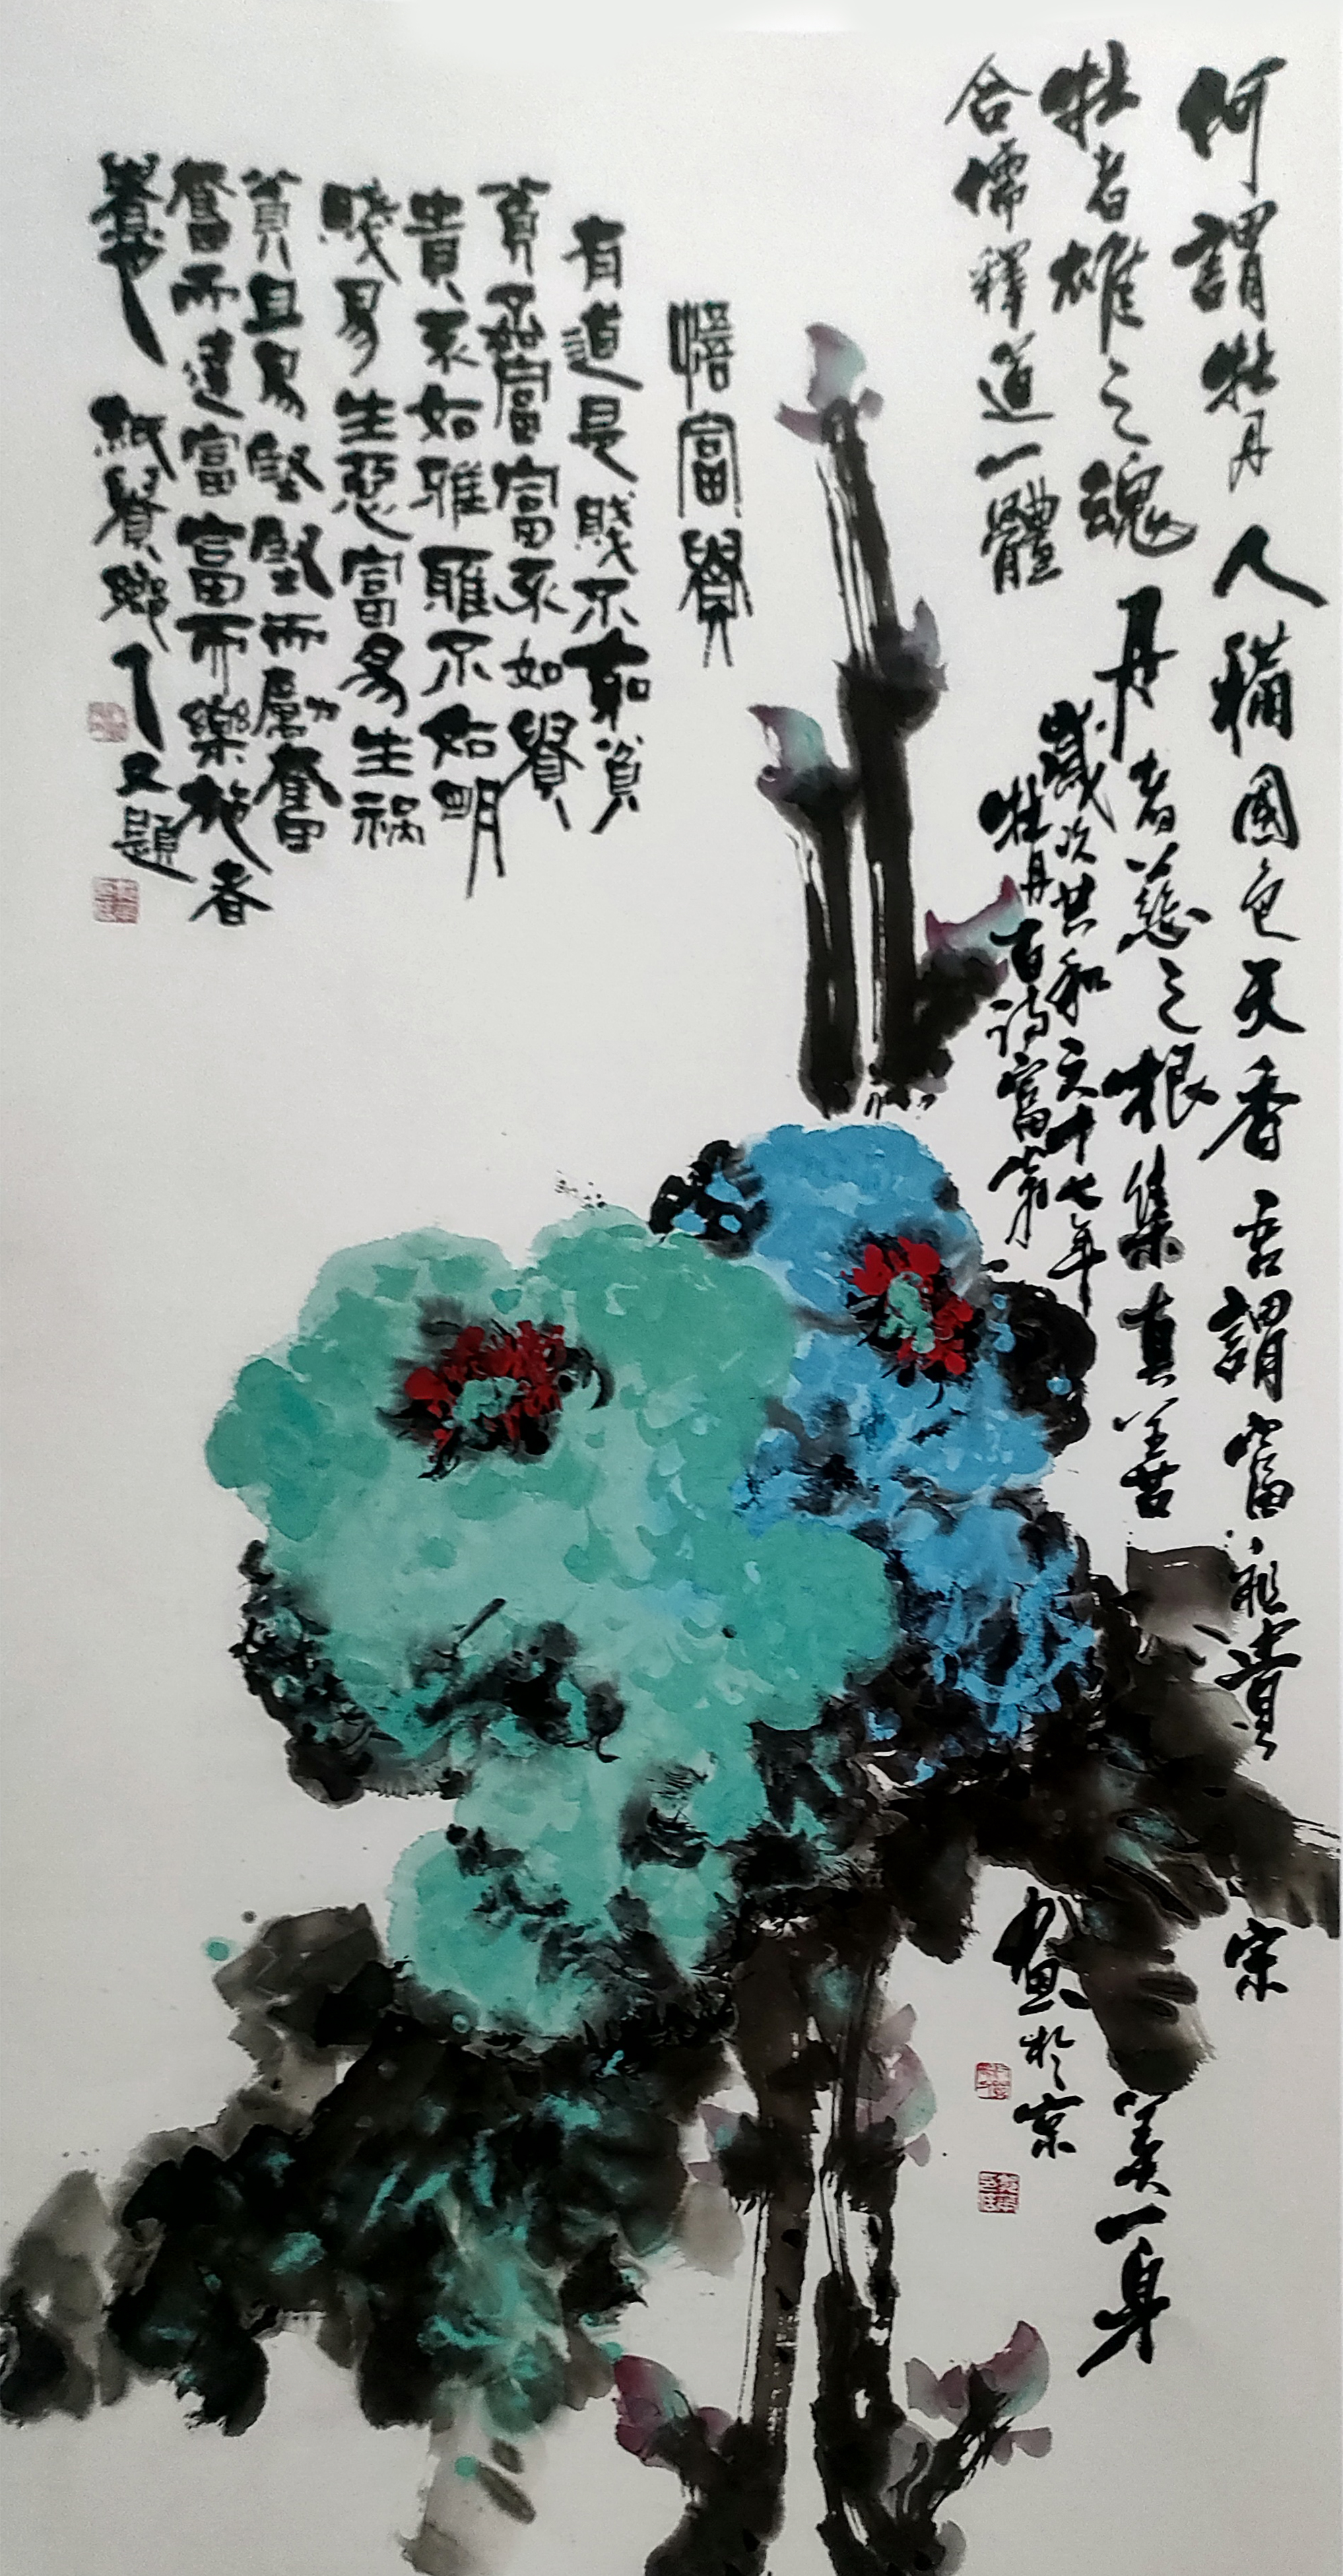 何謂牡丹人稱國色天香吾謂富祖貴宗
牡者雄之魂丹者慈之根集真善美一身
含儒釋道一體
歲次共和六十七年
牡丹百詩富第
畫於京
悟富譽
有道是賤不如貧
貧不如富富不如譽
貴不如雅雅不如明
賤易生惡富易生禍
貧且易堅堅而勵奮
奮而達富富而樂施者
又題